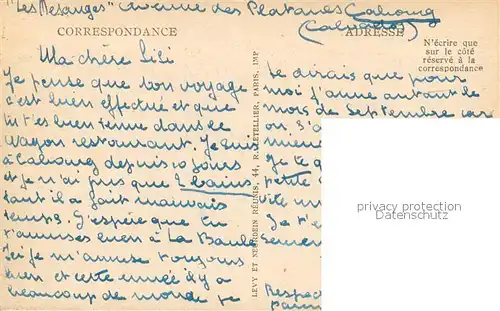 "Les Mesanges" Avenue des Platanes Cabourg
(Calvados)
CORRESPONDANCE
ADRESSE
N'écrire que
sur le côté
réservé à la
correspondance
Ma chère Lili
Je pense que ton voyage
c'est bien effectué et que
tu t'es bien tenue dans le
wagon restaurant. Je suis
à Cabourg depuis 10 jours
et je n'ai pris que 2 bains
tant il a fait mauvais
temps. J'espère que tu
t'amuses bien à La Baule
Ici je m'amuse toujours
bien et cette année il y a
beaucoup de monde je
LEVY ET NEURDEIN RÉUNIS, 44, R. LETELLIER, PARIS, IMP
te dirais que pour
moi j'aime autant le
mois de Septembre car
on s'a
Je te
petite
Je t'e
Respec
Privatsphäre
Datenschutz